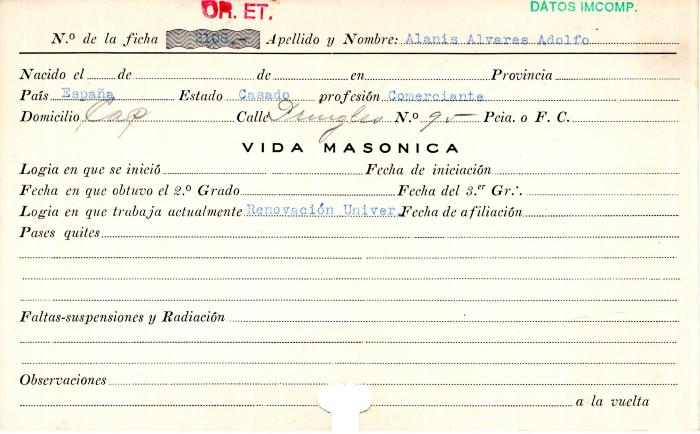 OR. ET.
DATOS IMCOMP.
N.º de la ficha 2108.- Apellido y Nombre: Alanis Alvares Adolfo
Nacido el de de en Provincia
País España Estado Casado profesión Comerciante
Domicilio Cap Calle Pringles N.º 95 Pcia. o F. C.
VIDA MASONICA
Logia en que se inició Fecha de iniciación
Fecha en que obtuvo el 2.º Grado Fecha del 3.er Gr∴
Logia en que trabaja actualmente Renovación Univer. Fecha de afiliación
Pases quites
Faltas-suspensiones y Radiación
Observaciones
a la vuelta